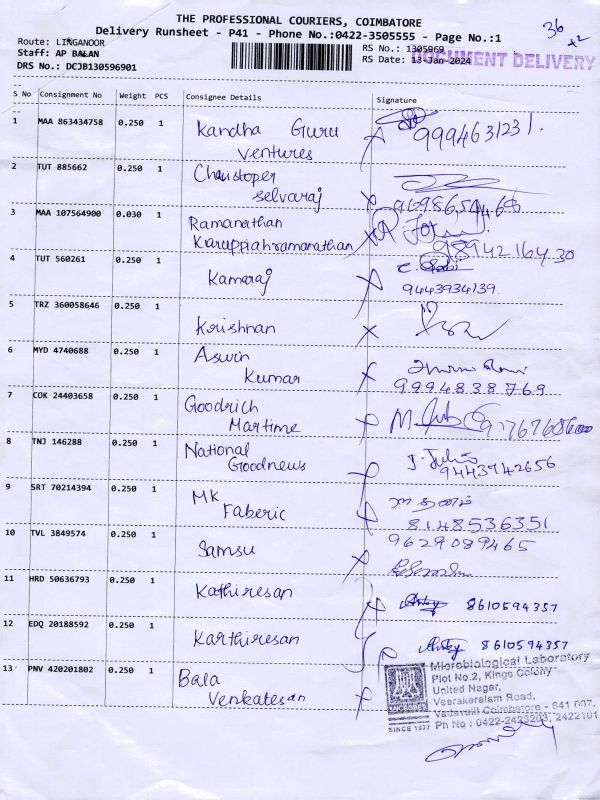 THE PROFESSIONAL COURIERS, COIMBATORE
Delivery Runsheet - P41 - Phone No.:0422-3505555 - Page No.:1
36
+2
Route: LINGANOOR
Staff: AP BALAN
DRS No.: DCJB130596901
RS No.: 1305969
RS Date: 13-Jan-2024
DOCUMENT DELIVERY
S No Consignment No Weight PCS Consignee Details Signature
1 MAA 863434758 0.250 1 Kandha Guru
ventures
9994631231.
2 TUT 885662 0.250 1 Christoper
Selvaraj
3 MAA 107564900 0.030 1 Ramanathan
Karuppiahramanathan
9894216430
4 TUT 560261 0.250 1 Kamaraj
9443934139
5 TRZ 360058646 0.250 1 Krishnan
6 MYD 4740688 0.250 1 Aswin
Kumar
9994838769
7 COK 24403658 0.250 1 Goodrich
Martime
8 TNJ 146288 0.250 1 National
Goodnews
J. Julia
9443742656
9 SRT 70214394 0.250 1 MK
Faberic
8148536351
10 TVL 3849574 0.250 1 Samsu
9629089465
11 HRD 50636793 0.250 1 Kathiresan
8610594357
12 EDQ 20188592 0.250 1 Karthiresan
8610594357
13 PNV 420201802 0.250 1 Bala
Venkatesan
Microbiological Laboratory
Plot No.2, Kings Colony
United Nagar,
Veerakeralam Road,
Vadavalli Coimbatore - 641 007.
SINCE 1977 Ph No : 0422-2423203, 2422101